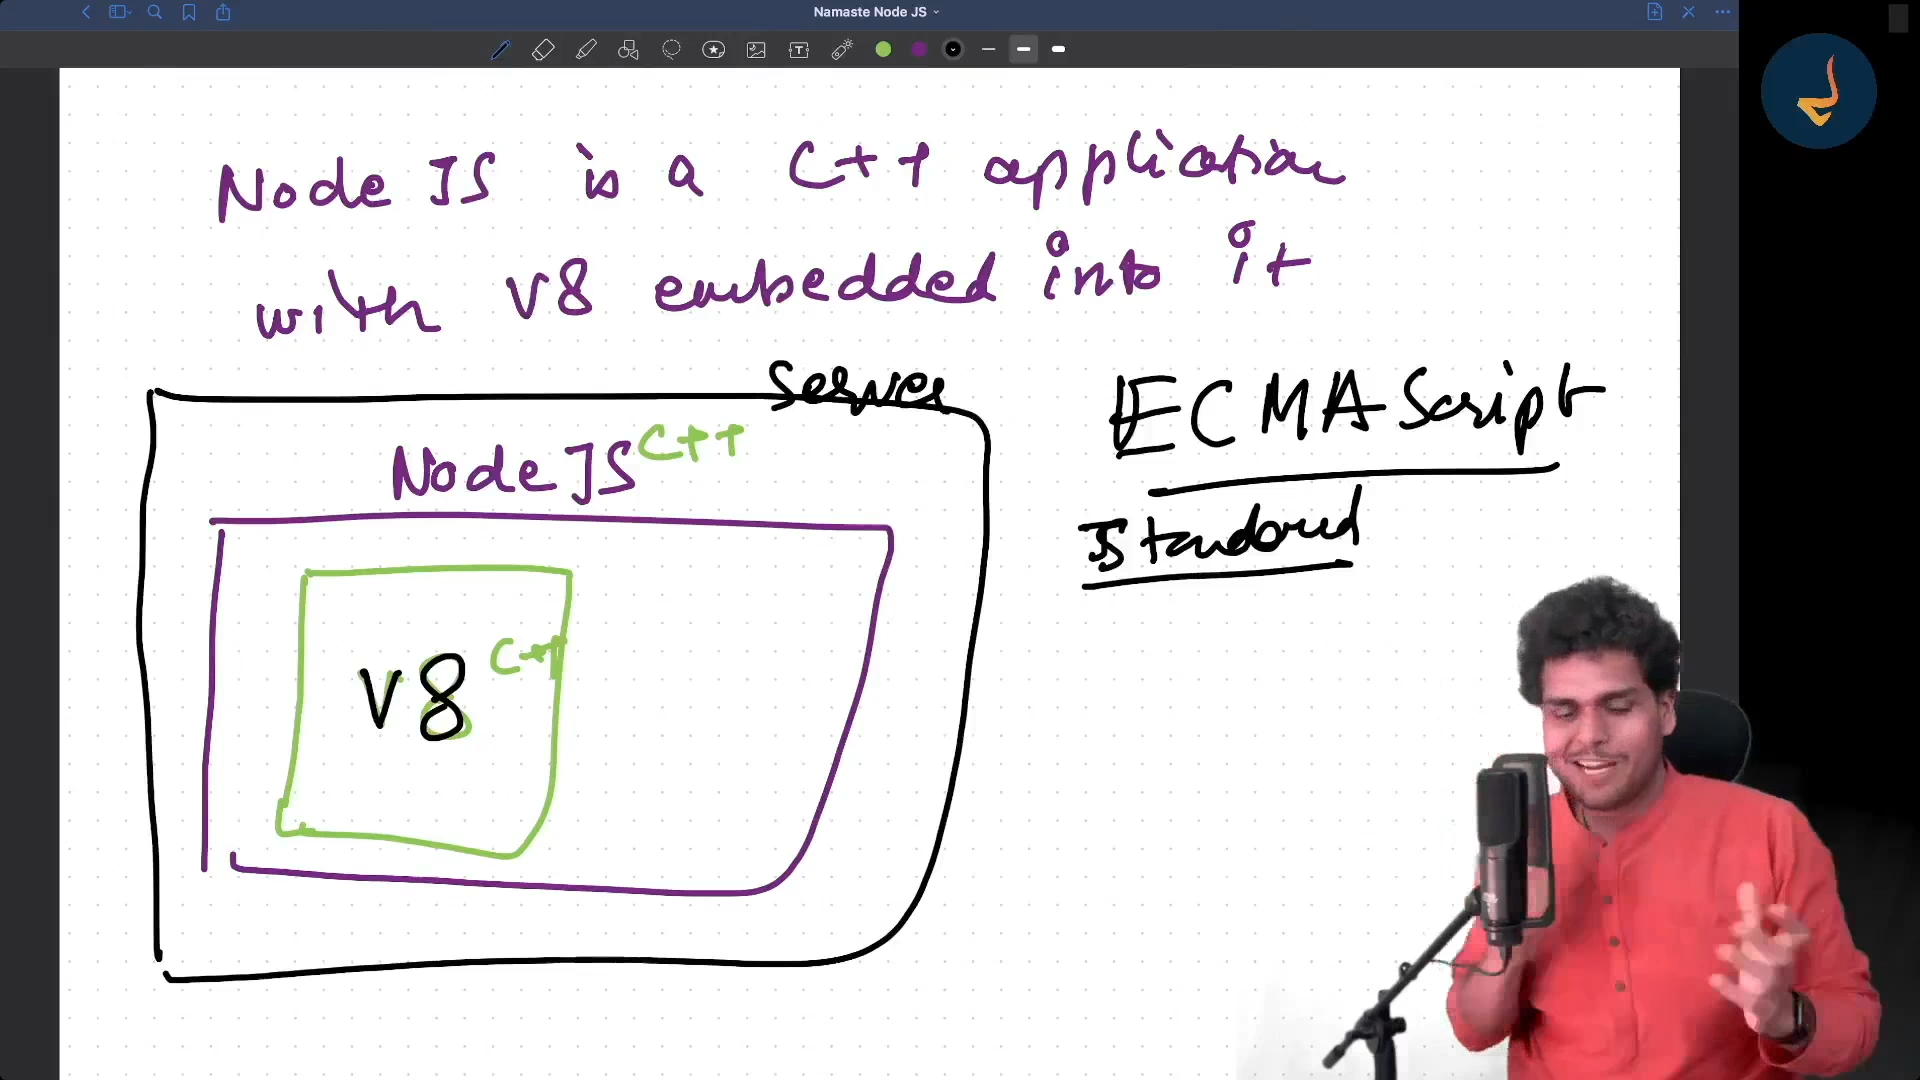 Namaste Node JS
Node JS is a C++ application
with V8 embedded into it
Server
Node JS C++
V8 C++
ECMAScript
JS Standard